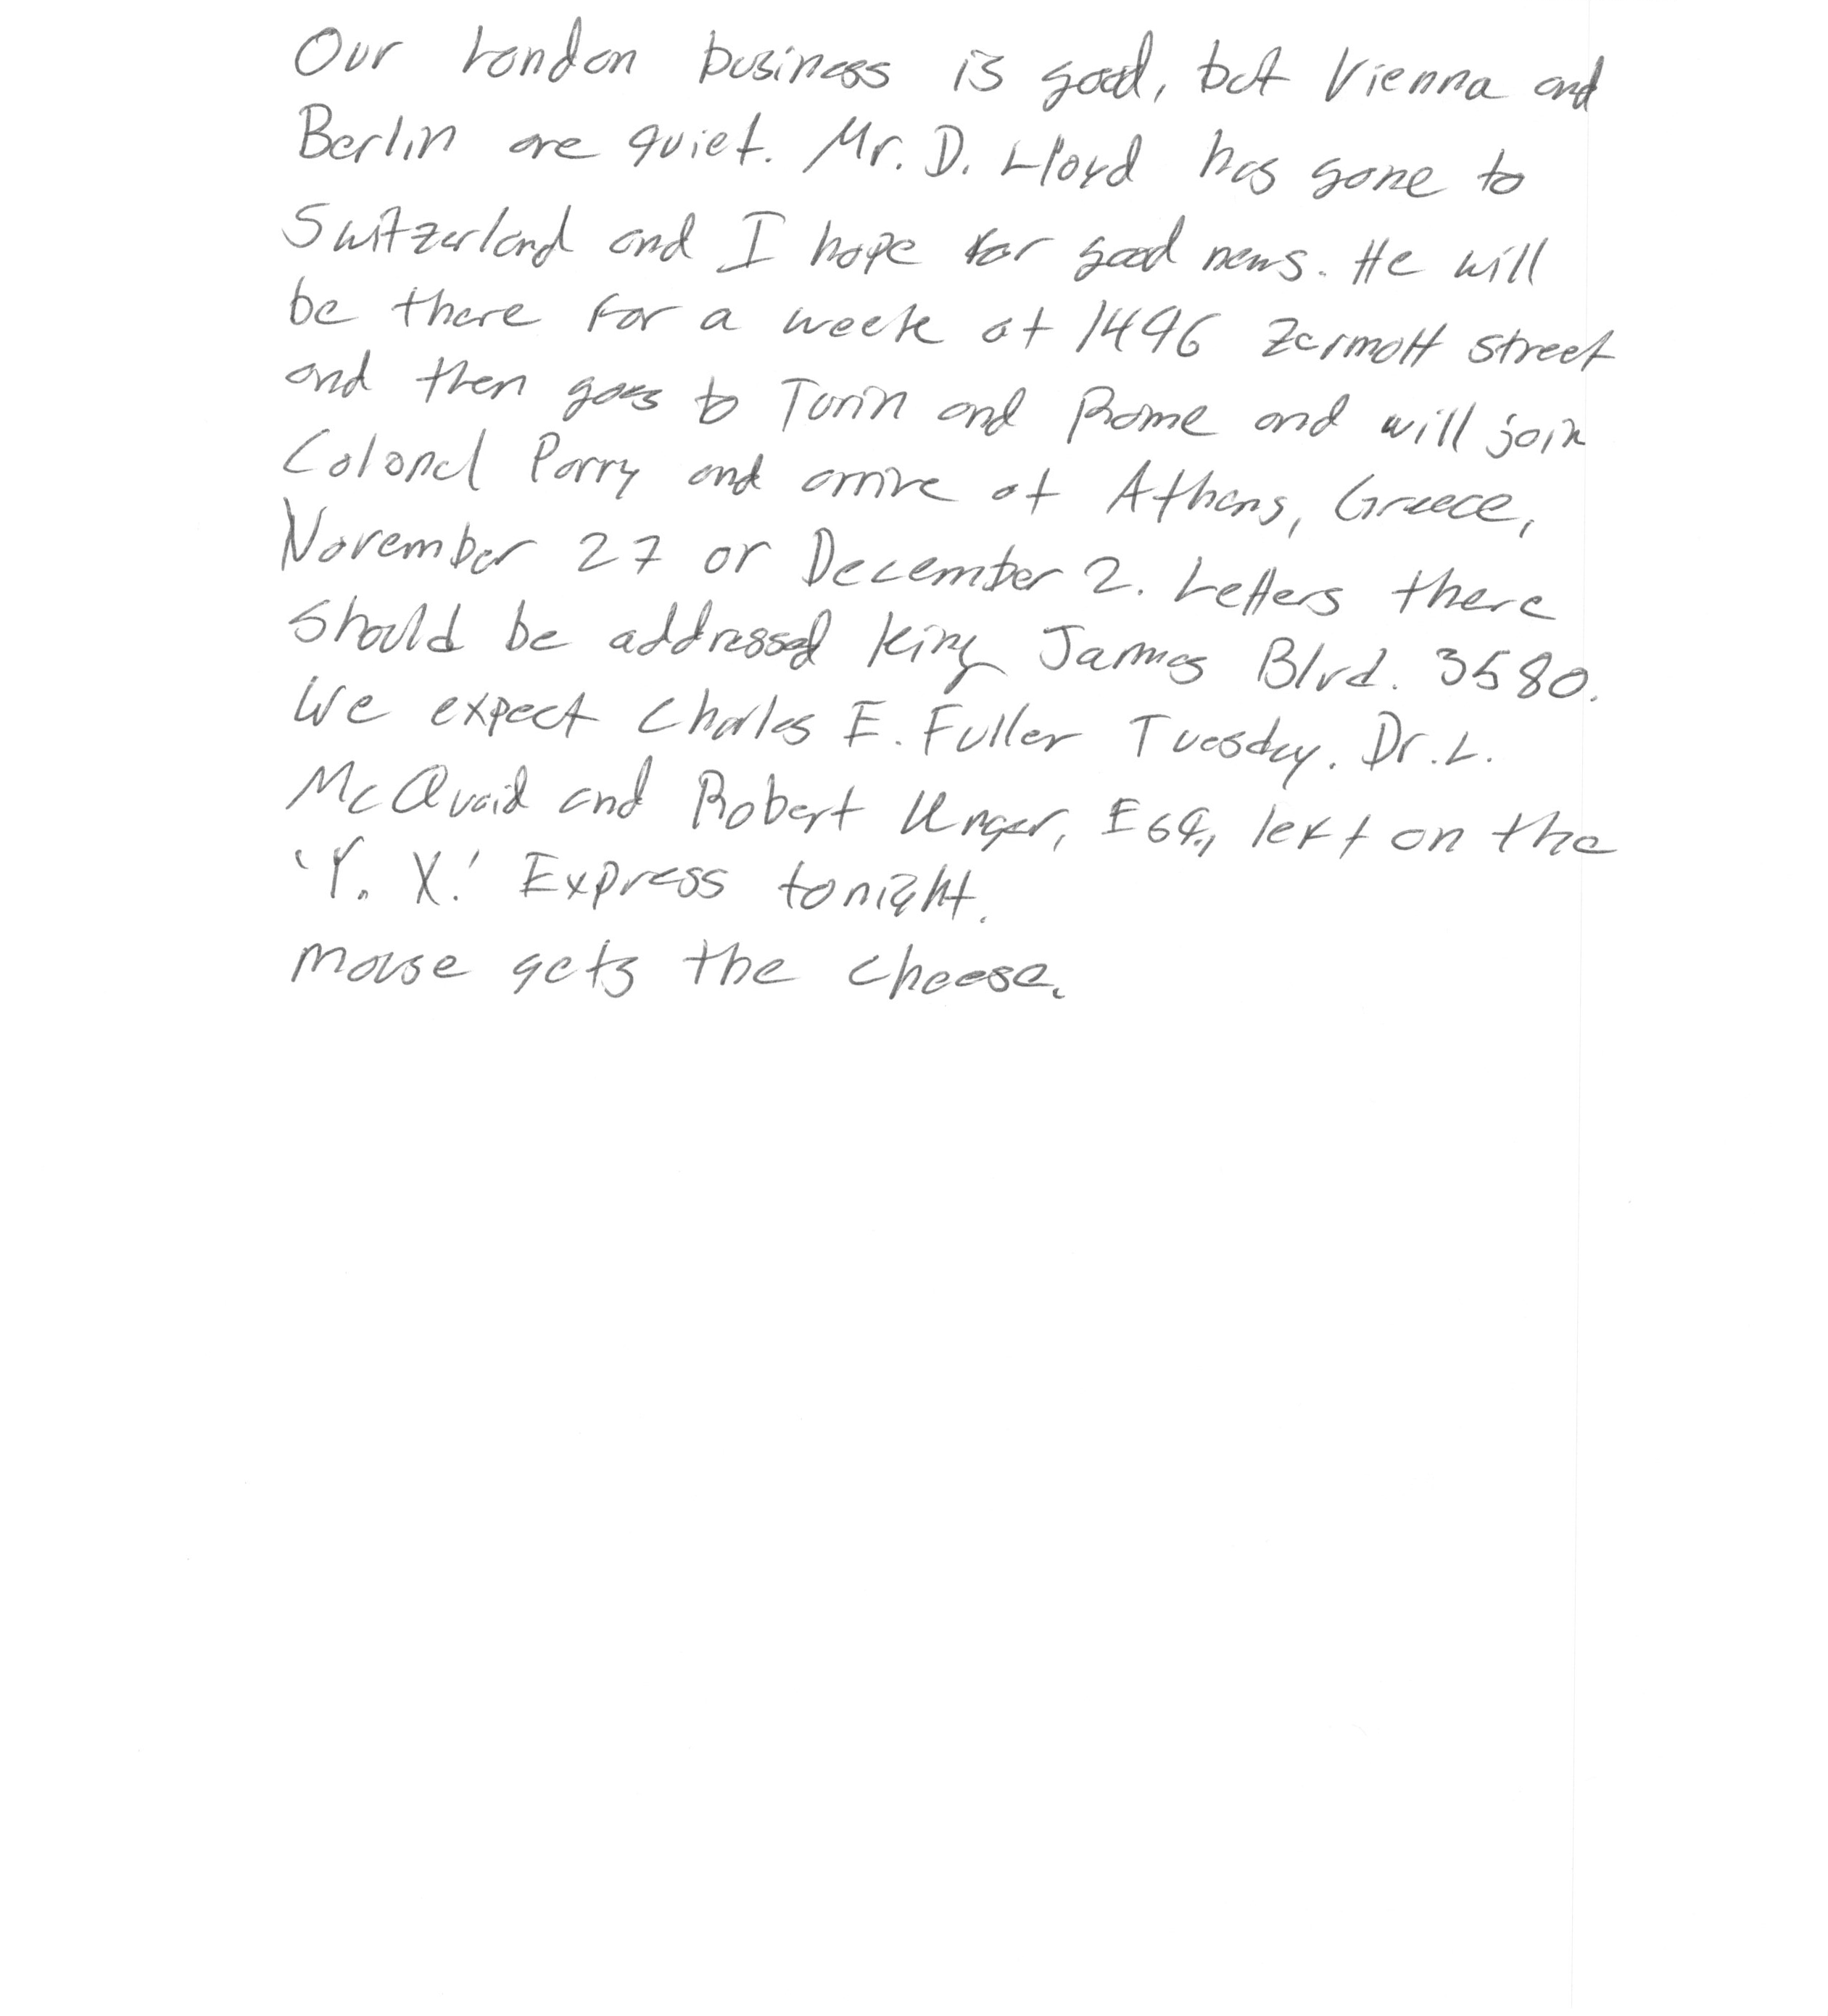 Our London business is good, but Vienna and
Berlin are quiet. Mr. D. Lloyd has gone to
Switzerland and I hope for good news. He will
be there for a week at 1496 Zermott street
and then goes to Turin and Rome and will join
Colonel Parry and arrive at Athens, Greece,
November 27 or December 2. Letters there
should be addressed King James Blvd. 3580.
We expect Charles E. Fuller Tuesday. Dr. L.
McQuaid and Robert Unger, Esq., left on the
'Y. X.' Express tonight.
Mouse gets the cheese.